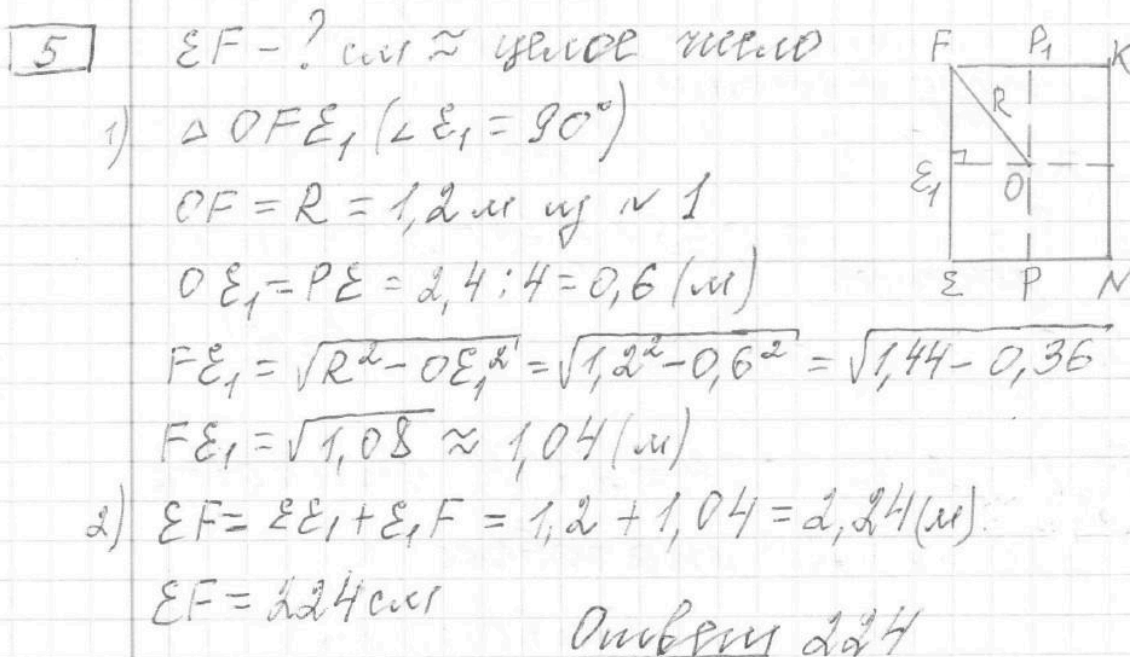 5 EF - ? см ≈ целое число
1) △ OFE₁ (∠E₁ = 90°)
OF = R = 1,2 м из № 1
OE₁ = PE = 2,4 : 4 = 0,6 (м)
FE₁ = √(R² - OE₁²) = √(1,2² - 0,6²) = √(1,44 - 0,36)
FE₁ = √1,08 ≈ 1,04 (м)
2) EF = EE₁ + E₁F = 1,2 + 1,04 = 2,24 (м)
EF = 224 см
Ответ 224
F P₁ K
R
E₁ O
E P N